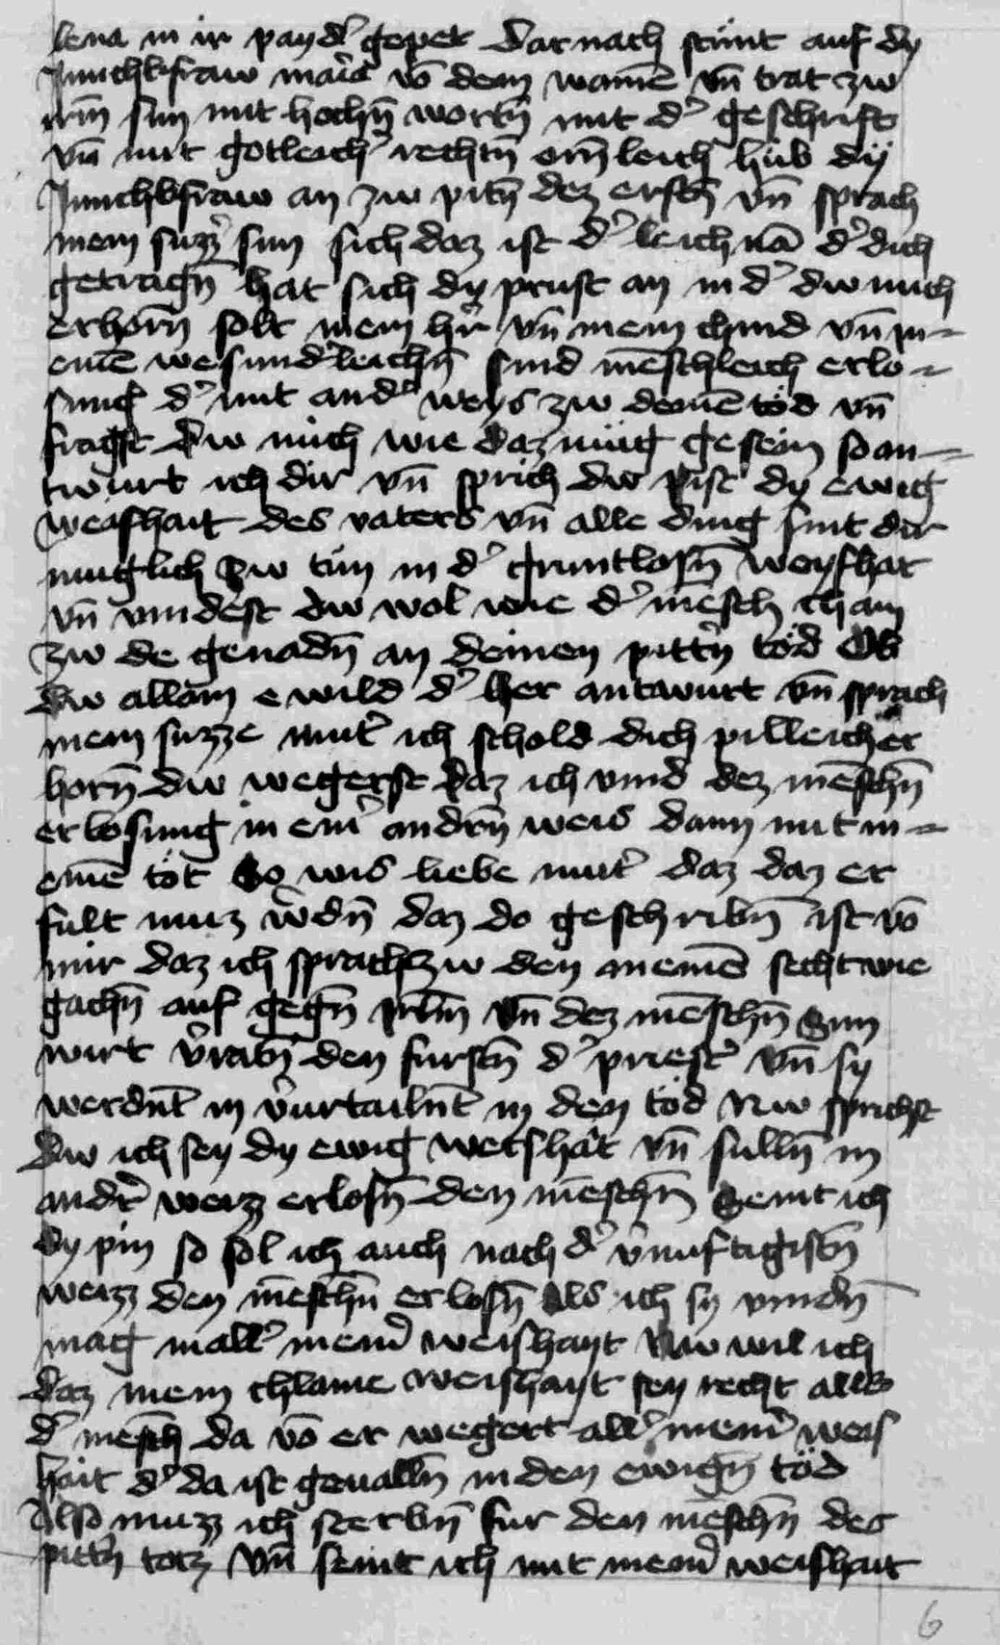 lena in ir payd' gepet Dar nach stunt auf dy
Junchkfraw maria vō dem wainē vn̄ trat zw
irm̄ sun mit hochn̄ wortn̄ mit d' geschrift
vn̄ mit gotleich' rechtn̄ ern̄leich hub dy
Junchkfraw an zw pitn̄ dez erstn̄ vn̄ sprach
mein suzz' sun sich daz ist d' leichnā d' dich
getragn̄ hat sich dy prust an in d' dw mich
erhorn̄ solt mein h'r vn̄ mein chind vn̄ in
ainē we sund'leichn̄ sind mēschleich erlo-
sung d' mit and' weys zw deinē tod vn̄
fragst dw mich wie daz müg gesein so an-
twurt ich dir vn̄ sprich dw pist dy ewig
weishait des vaters vn̄ alle ding sint dir
muglich zw tün in d' gruntlosn̄ weyshat
vn̄ vindest dw wol wie d' mēsch cham
zw de genadn̄ an deinen pittn̄ tod Ob
dw allain ewild d' her antwurt vn̄ sprach
mein suzze mut' ich schold dich pilleich er
horn̄ dw wegerst daz ich vmd dez mēschn̄
erlosung in ein' andrn̄ weis dann mit m-
einē tot So wis liebe mut' daz daz er
fult muz w'dn̄ daz do geschribn̄ ist vō
mir daz ich sprach zw den meinē secht wie
gachn̄ auf gegn̄ Jrl'm vn̄ dez mēschn̄ Sun
wirt v'ratn̄ den furstn̄ d' priest' vn̄ sy
werdnt in v'urtailnt in den tod Nw sprichst
dw ich sey dy ewig weishat vn̄ sulln̄ in
andr' weiz erlosn̄ den mēschn̄ Seint ich
dy pin so sol ich auch nach d' v'nuftigistn̄
weizz den mēschn̄ erlosn̄ Als ich sy vindn̄
mag in all' mein' weishayt Nw wil ich
daz mein chlaine weishayt sey recht alls
d' mēsch da vō er wegert all' mein' weis
hait d' da ist geualln̄ in den ewign̄ töd
Also muzz ich sterbn̄ fur den mēschn̄ des
pittn̄ totz vn̄ seint ich mit mein' weishait
6